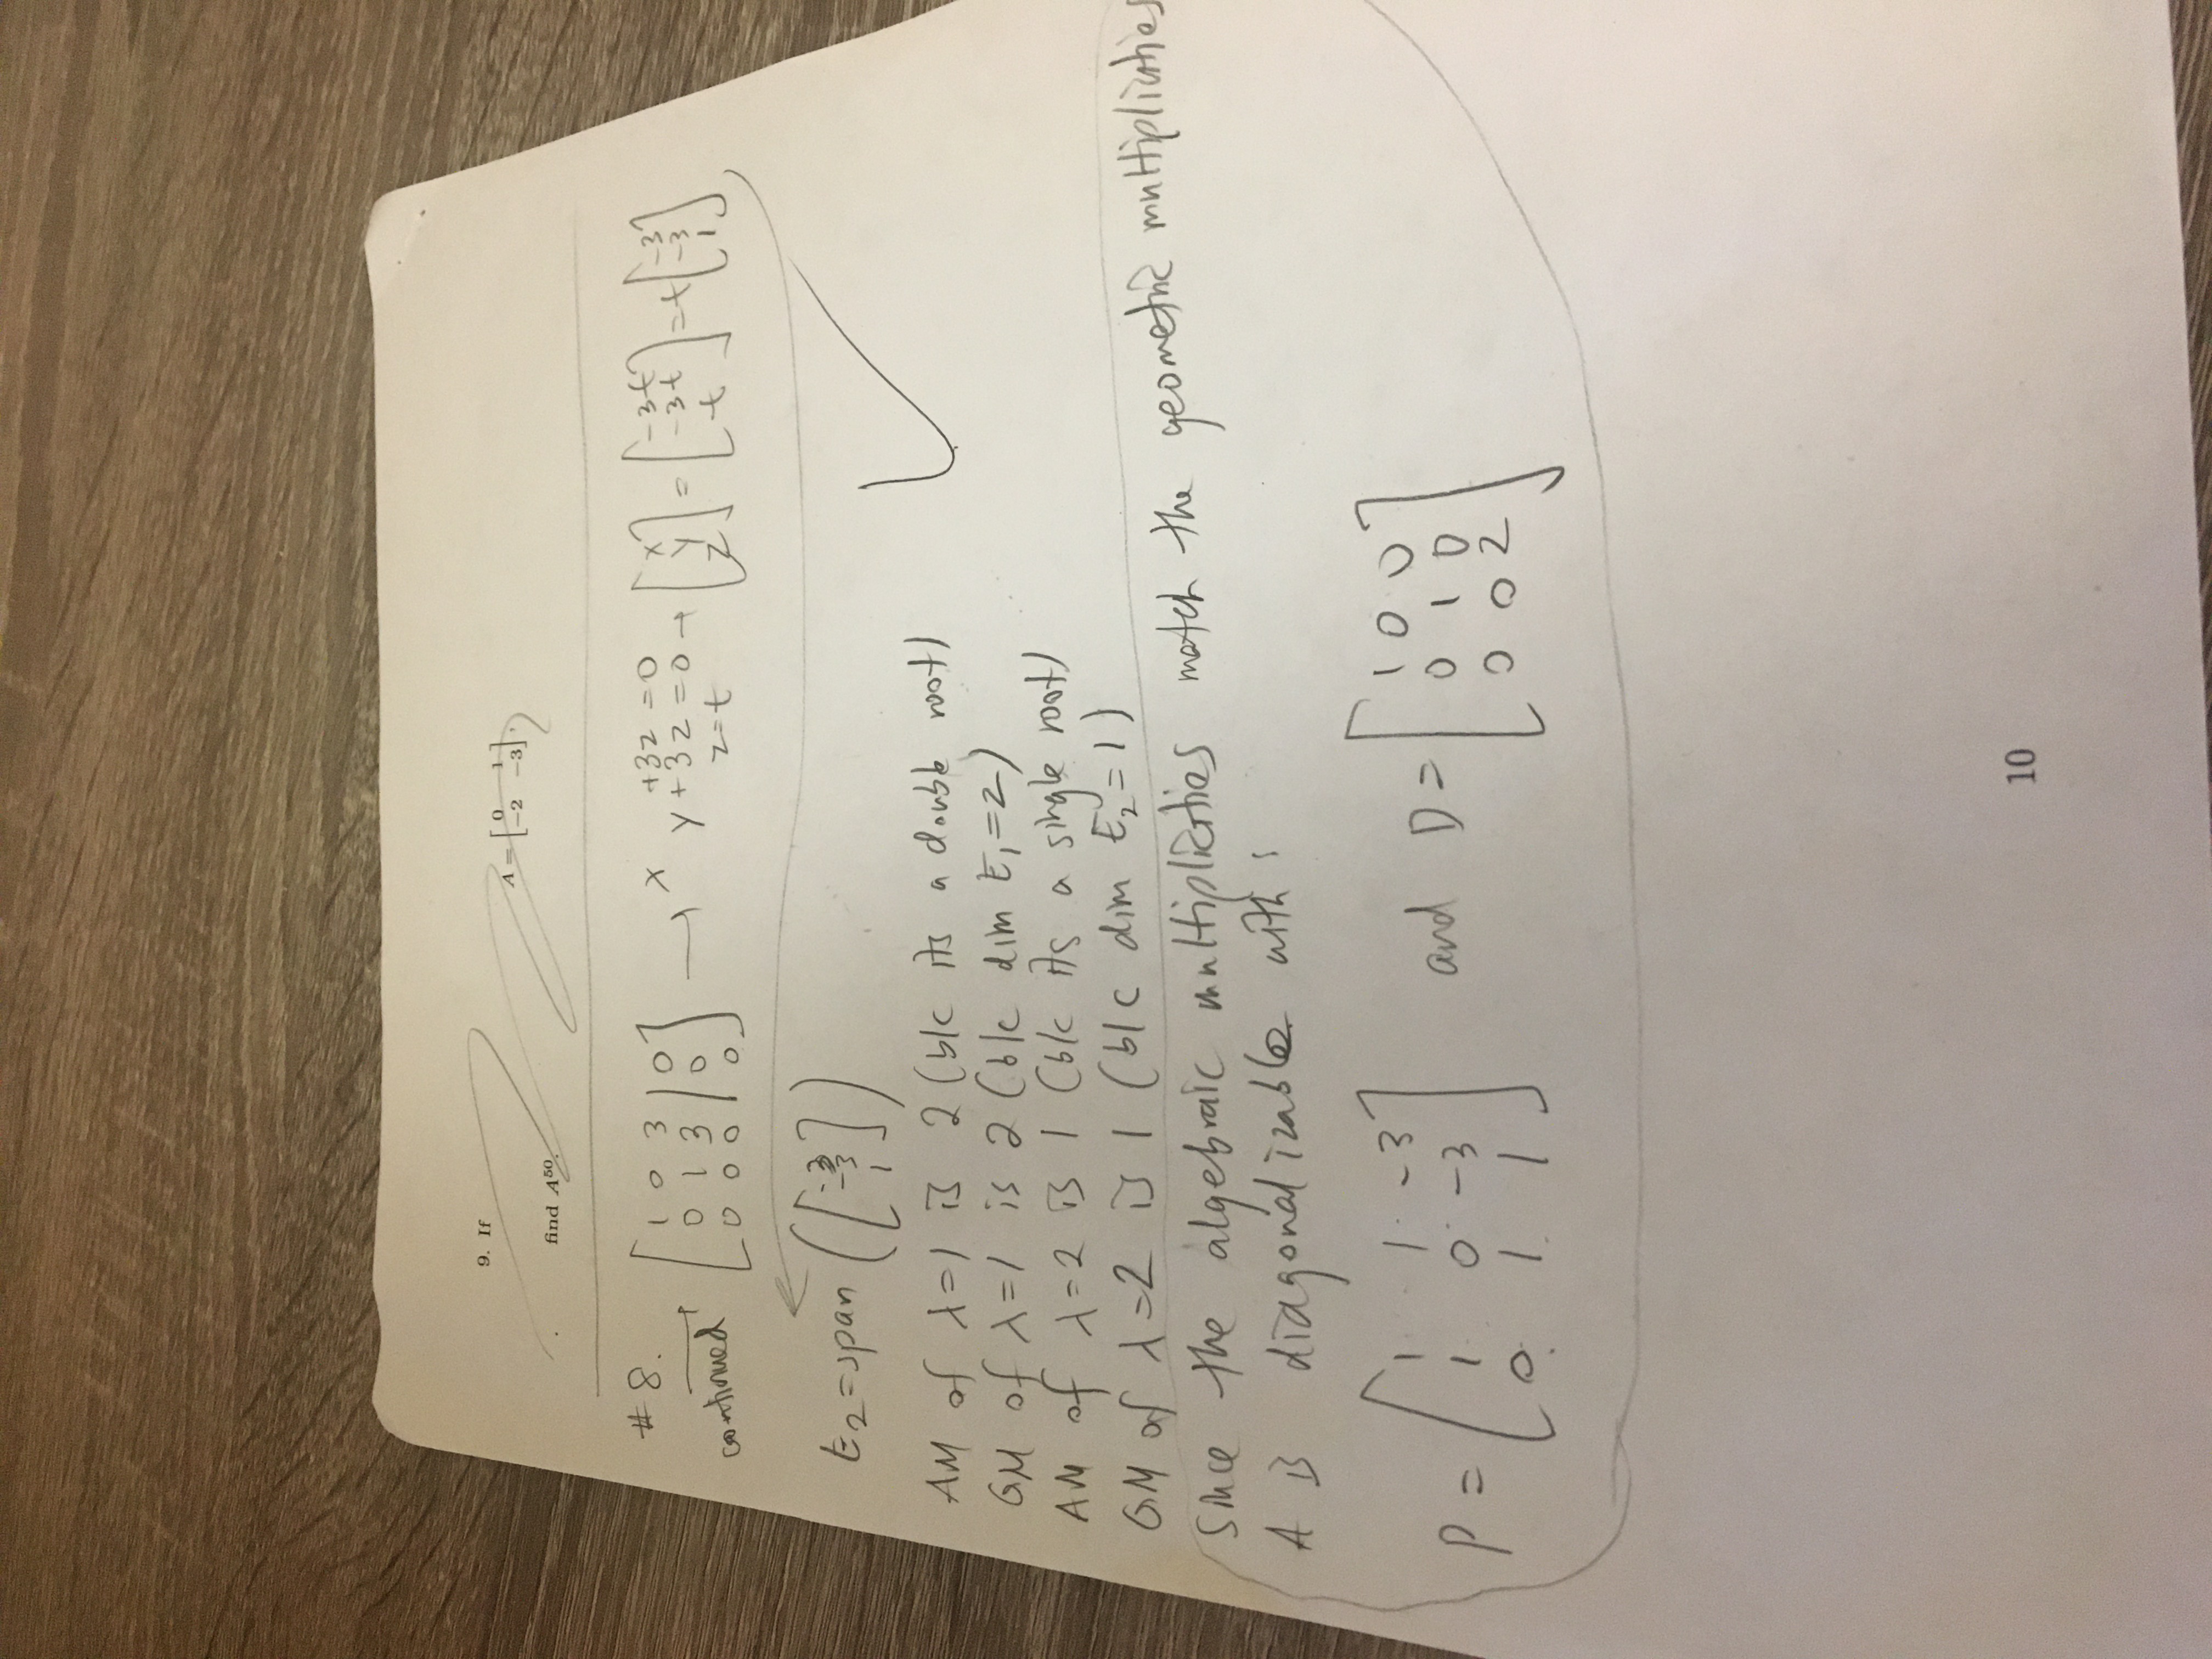 9. If
A = [0 1
-2 -3],
find A⁵⁰.
#8. continued
[1 0 3 | 0
0 1 3 | 0
0 0 0 | 0] → x +3z = 0
y + 3z = 0
z = t → [x
y
z] = [-3t
-3t
t] = t [-3
-3
1]
E₂ = span ([-3
-3
1])
AM of λ=1 is 2 (b/c its a double root)
GM of λ=1 is 2 (b/c dim E₁=2)
AM of λ=2 is 1 (b/c its a single root)
GM of λ=2 is 1 (b/c dim E₂=1)
Since the algebraic multiplicities match the geometric multiplicities
A is diagonalizable with:
P = [1 1 -3
1 0 -3
0 1 1] and D = [1 0 0
0 1 0
0 0 2]
10